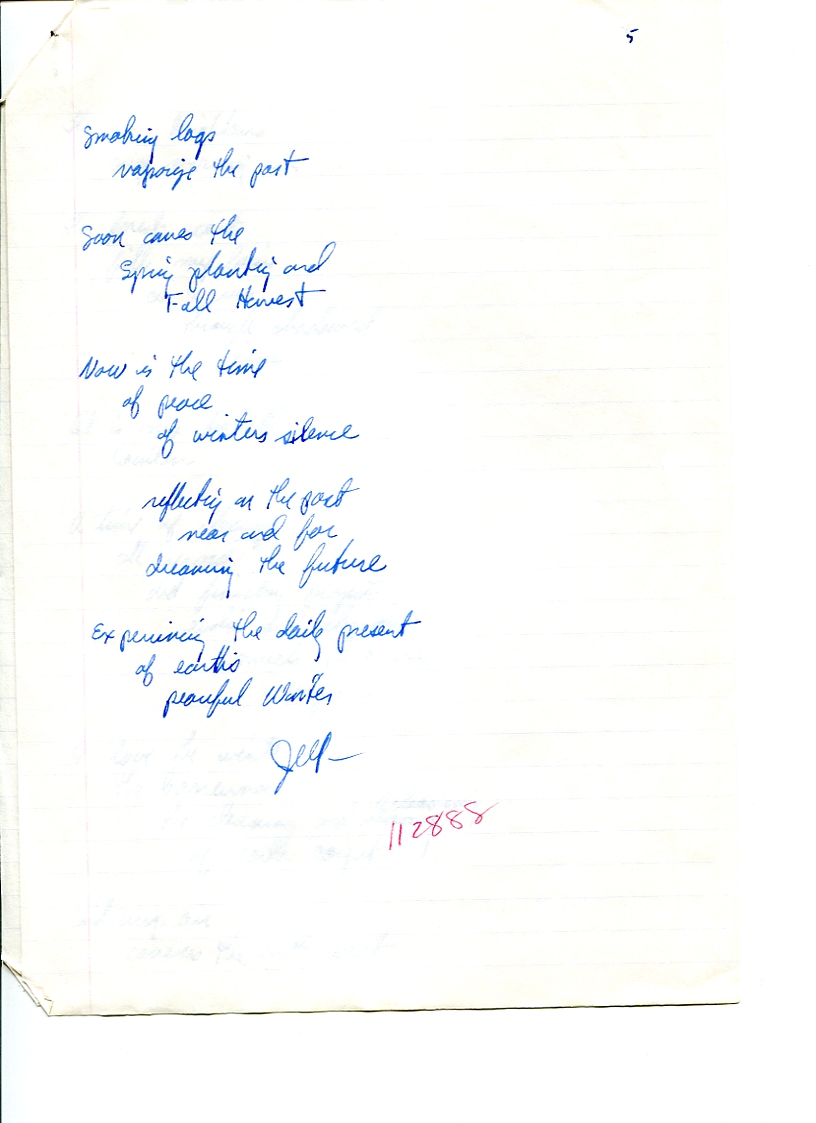 5
Smoking logs
vaporize the past
Soon comes the
Spring planting and
Fall Harvest
Now is the time
of peace
of winters silence
reflecting on the past
near and far
dreaming the future
Experiencing the daily present
of earths
peaceful Winter
112888